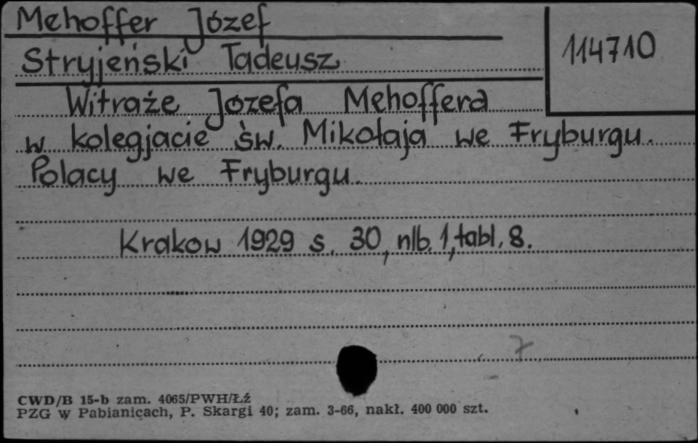 Mehoffer Józef
114710
Stryjeński Tadeusz
Witraże Józefa Mehoffera
w kolegjacie św. Mikołaja we Fryburgu.
Polacy we Fryburgu.
Krakow 1929 s. 30, nlb. 1, tabl. 8.
7
CWD/B 15-b zam. 4065/PWH/Łź
PZG w Pabianicach, P. Skargi 40; zam. 3-66, nakł. 400 000 szt.